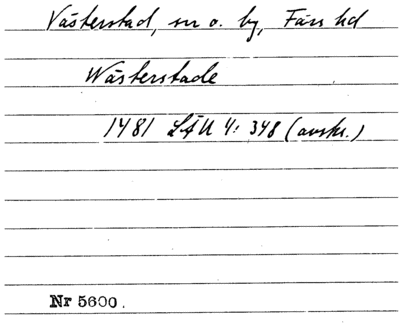 Västerstad, sn o. by, Färs hd
Wästerstade
1481 LÄU 4: 348 (avskr.)
Nr 5600.